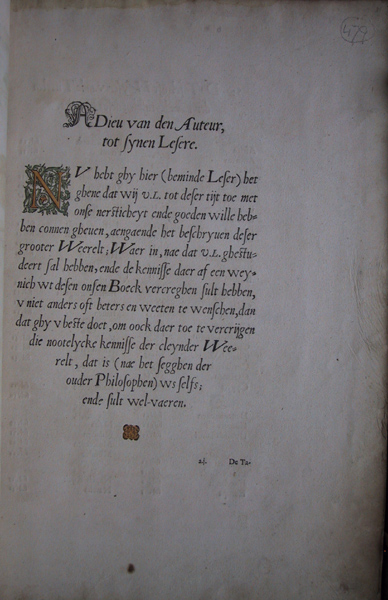 479
ADieu van den Auteur,
tot synen Lesere.
NV hebt ghy hier (beminde Leser) het
ghene dat wij v.L. tot deser tijt toe met
onse nersticheyt ende goeden wille heb-
ben connen gheuen, aengaende het beschryuen deser
grooter Weerelt; Waer in, nae dat v.L. ghestu-
deert sal hebben, ende de kennisse daer af een wey-
nich wt desen onsen Boeck vercreghen sult hebben,
v niet anders oft beters en weeten te wenschen, dan
dat ghy v beste doet, om oock daer toe te vercrijgen
die nootelycke kennisse der cleynder Wee-
relt, dat is (nae het segghen der
ouder Philosophen) ws selfs;
ende sult wel-vaeren.
De Ta-